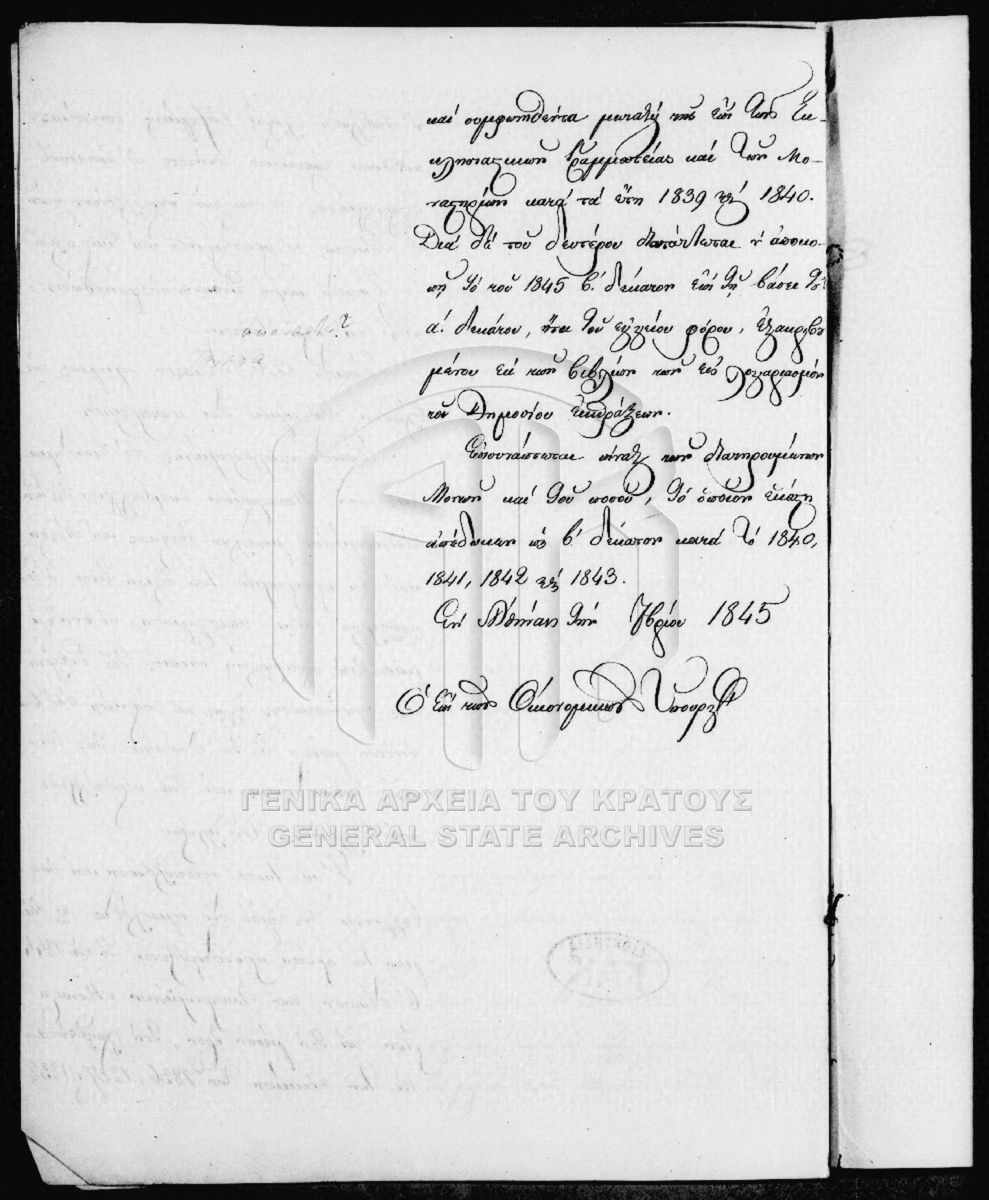 καὶ συμφωνηθέντα μεταξὺ τῆς ἐπὶ τῶν Ἐκ-
κλησιαστικῶν Γραμματείας καὶ τῶν Μο-
ναστηρίων κατὰ τὰ ἔτη 1839 καὶ 1840.
Διὰ δὲ τοῦ δευτέρου διατάττεται ἡ ἀποκο-
πὴ τοῦ 1845 β. δέκατον ἐπὶ τῇ βάσει τοῦ
α. δεκάτου, ἤτοι τοῦ ἐγγείου φόρου, ἐξηκριβω
μένου ἐκ τῶν βιβλίων τῶν εἰς λογαριασμὸν
τοῦ Δημοσίου εἰσπράξεων.
Ἐπισυνάπτεται πίναξ τῶν διατηρουμένων
Μονῶν καὶ τοῦ ποσοῦ, τὸ ὁποῖον ἑκάστη
ἀπέδωκεν ὡς β. δέκατον κατὰ τὸ 1840,
1841, 1842 καὶ 1843.
Ἐν Ἀθήναις τὴν 7βρίου 1845
Ὁ ἐπὶ τῶν Οἰκονομικῶν Ὑπουργὸς
ΓΕΝΙΚΑ ΑΡΧΕΙΑ ΤΟΥ ΚΡΑΤΟΥΣ
GENERAL STATE ARCHIVES